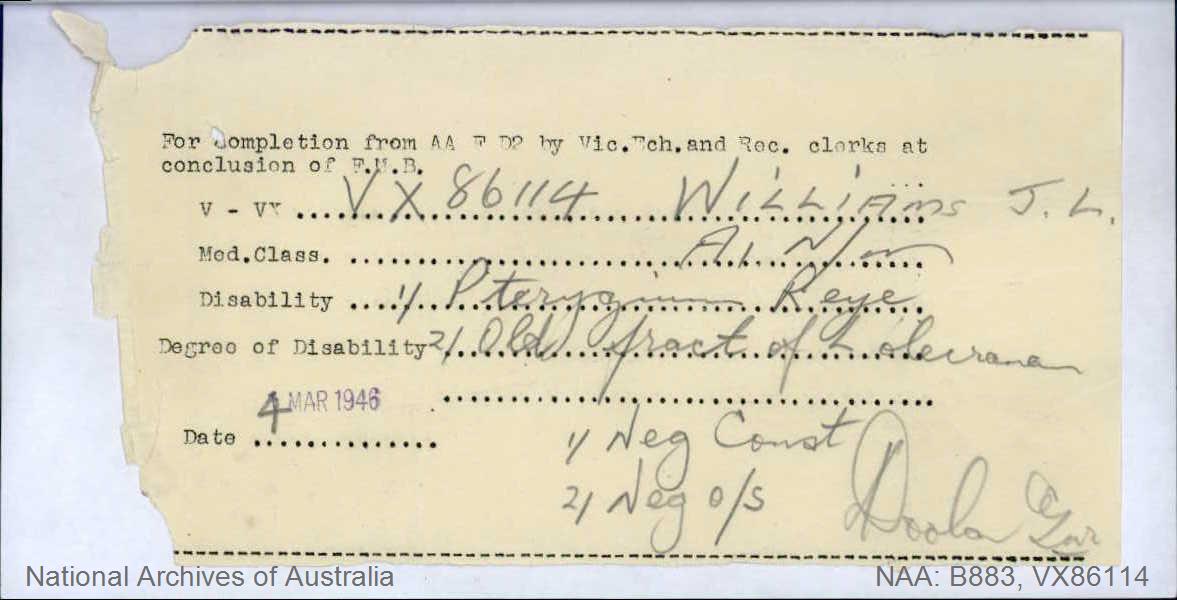 For completion from AA F D2 by Vic.Ech.and Rec. clerks at
conclusion of F.M.B.
V - VX ...... VX 86114 WILLIAMS J. L.
Med.Class. ...... A1
Disability ...... 1/ Pterygium R eye
Degree of Disability 2/ Old fract of L olecranon
4 MAR 1946
Date ......
1/ Neg Const
2/ Neg o/s
National Archives of Australia
NAA: B883, VX86114